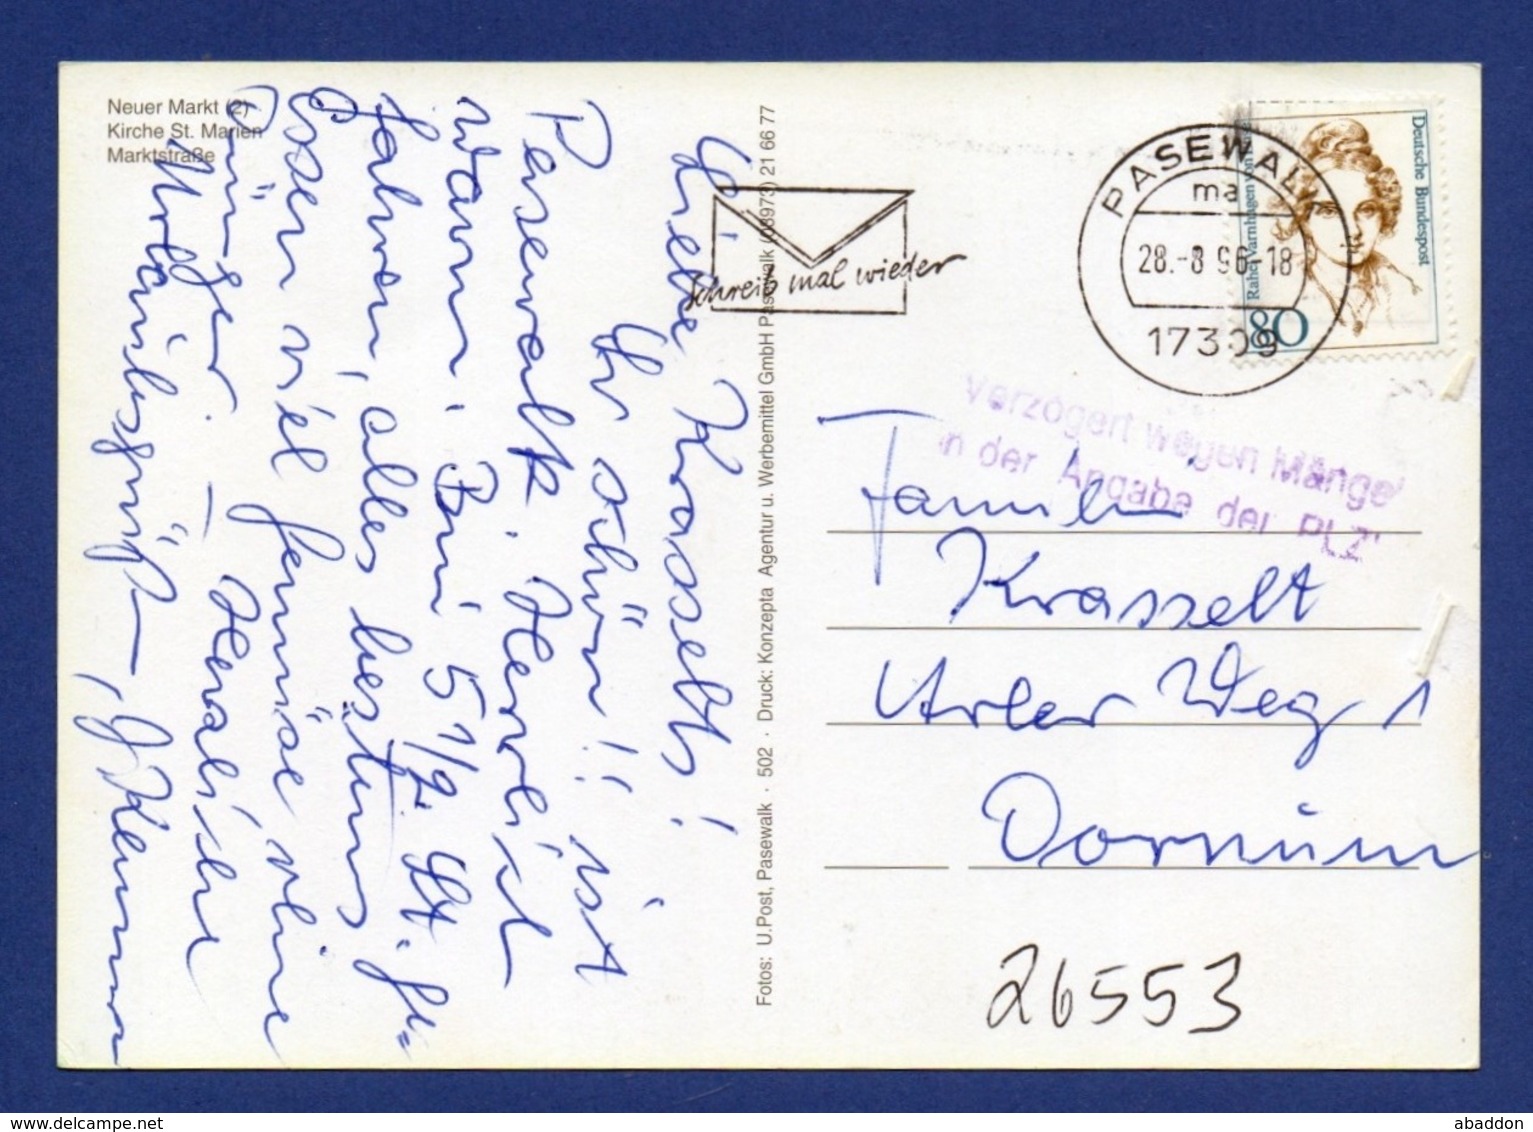 Neuer Markt (2)
Kirche St. Marien
Marktstraße
Liebe Krasselts!
Ihr schön!! ist
Pasewalk. Herrlich
warm. Bin 5 1/2 St. ge=
fahren, alles bestens
Essen viel Gemüse ohne
Dünger. – Herzliche
Urlaubsgrüße,
Fotos: U.Post, Pasewalk · 502 · Druck: Konzepta Agentur u. Werbemittel GmbH Pasewalk (03973) 21 66 77
Schreib mal wieder
PASEWALK
ma
28.-8.96-18
17309
Deutsche Bundespost
Rahel Varnhagen von Ense
80
Verzögert wegen Mängel
in der Angabe der PLZ
Familie
Krasselt
Arler Weg 1
Dornum
26553
www.delcampe.net
abaddon